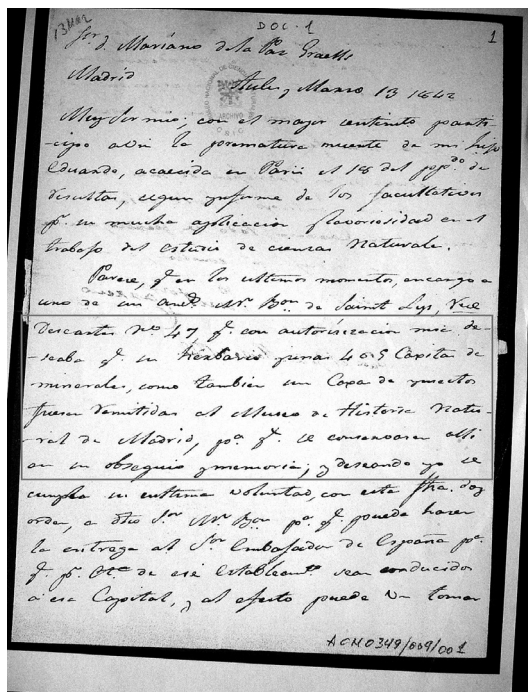 13 Mar
DOC. 1
1
Sor. d. Mariano de la Paz Graells
Madrid
Marzo 13 1842
Muy Sor mio; con el mayor sentimto parti-
cipo a Vd la prematura muerte de mi hijo
Eduardo, acaecida en Paris el 18 del ppdo de
resultas, segun informe de los facultativos
pr. su mucha aplicacion y laboriosidad en el
trabajo del estudio de ciencias Naturale.
Parece, qe en los ultimos momentos, encargo a
uno de sus Mr. Bon de Saint Lys, rue
Descartes No 47 qe. con autorizacion mia de-
-seaba qe. su herbario y unas 4 o 5 Capitas de
minerales, como tambien una Capa de ynsectos
fuesen remitidas al Museo de Historia Natu-
-ral de Madrid, pa. qe. se conservasen alli
en su obsequio y memoria; y deseando yo se
cumpla su ultima voluntad, con esta fha. doy
orden, a dho Sor Mr. Bon pa. qe pueda hacer
la entrega al Sor Embajador de España pa.
qe. pr. Cta de ese Establecimto sean conducidos
a esa Capital, y al efecto puede Vd tomar
ACN0349/009/001